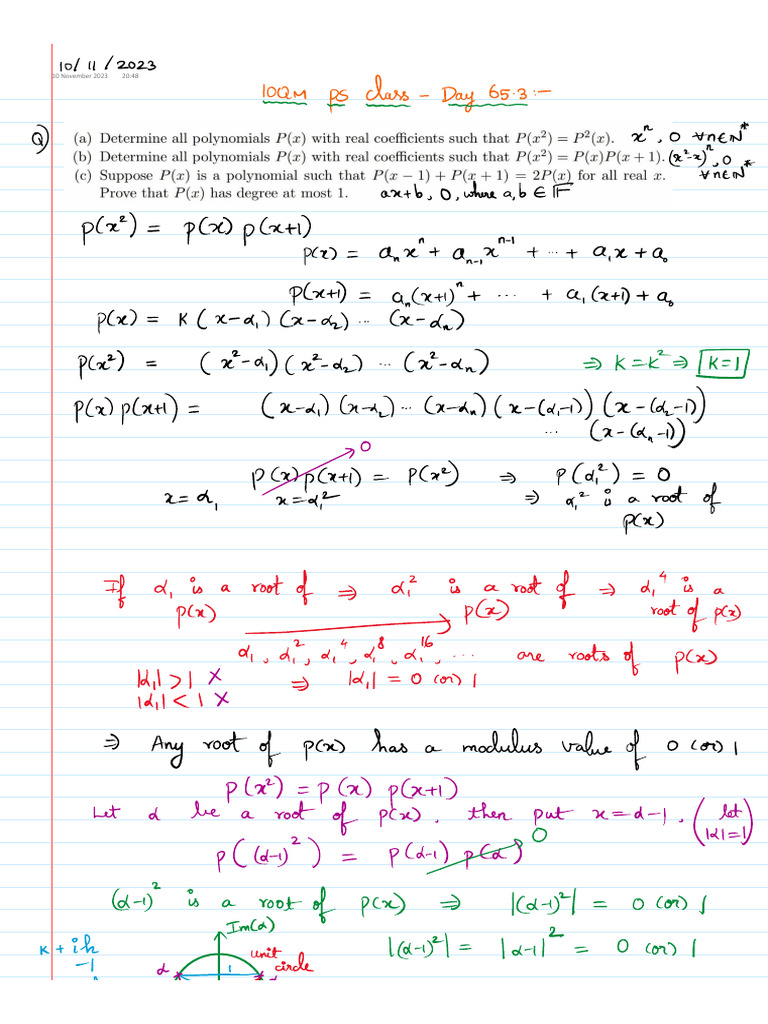 10/11/2023
10 November 2023 20:48
IOQM PS class – Day 65.3:-
Q) (a) Determine all polynomials P(x) with real coefficients such that P(x²) = P²(x). xⁿ, 0 ∀n∈N*
(b) Determine all polynomials P(x) with real coefficients such that P(x²) = P(x)P(x + 1). (x²-x)ⁿ, 0 ∀n∈N*
(c) Suppose P(x) is a polynomial such that P(x − 1) + P(x + 1) = 2P(x) for all real x.
Prove that P(x) has degree at most 1. ax+b, 0, where a,b ∈ F
P(x²) = P(x) P(x+1)
P(x) = aₙxⁿ + aₙ₋₁xⁿ⁻¹ + ... + a₁x + a₀
P(x+1) = aₙ(x+1)ⁿ + ... + a₁(x+1) + a₀
P(x) = K(x-α₁)(x-α₂)...(x-αₙ)
P(x²) = (x²-α₁)(x²-α₂)...(x²-αₙ) ⇒ K=K² ⇒ K=1
P(x)P(x+1) = (x-α₁)(x-α₂)...(x-αₙ)(x-(α₁-1))(x-(α₂-1))
... (x-(αₙ-1))
0
P(x)P(x+1) = P(x²) ⇒ P(α₁²) = 0
x=α₁ x=α₁² ⇒ α₁² is a root of
P(x)
If α₁ is a root of ⇒ α₁² is a root of ⇒ α₁⁴ is a
P(x) P(x) root of P(x)
α₁, α₁², α₁⁴, α₁⁸, α₁¹⁶, ... are roots of P(x)
|α₁| > 1 X ⇒ |α₁| = 0 (or) 1
|α₁| < 1 X
⇒ Any root of P(x) has a modulus value of 0 (or) 1
P(x²) = P(x) P(x+1)
Let α be a root of P(x), then put x=α-1, (let |α|=1)
P((α-1)²) = P(α-1) P(α) 0
(α-1)² is a root of P(x) ⇒ |(α-1)²| = 0 (or) 1
Im(α)
|(α-1)²| = |α-1|² = 0 (or) 1
K + ih
-1
α 1 unit circle